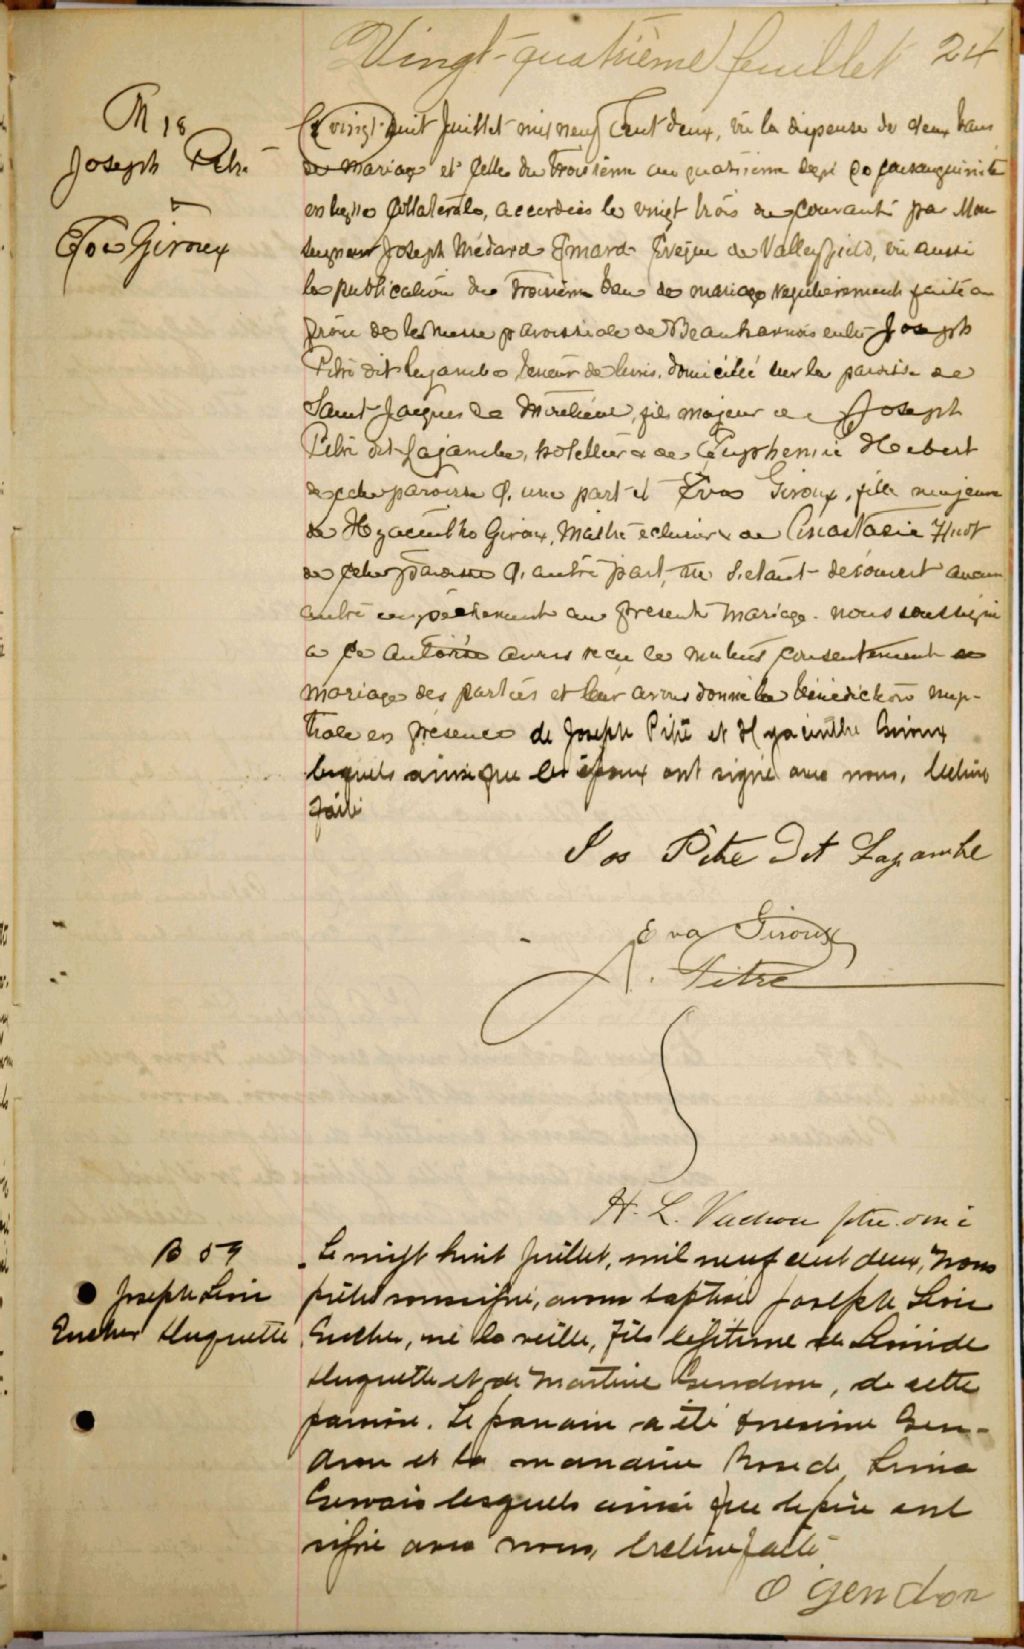 Vingt-quatrième feuillet 24
M 18
Joseph Pitre
&
Eva Giroux
Le vingt huit Juillet mil neuf Cent deux, vu la dispense de deux bans
de mariage et celle du troisième au quatrième degré de consanguinité
en ligne collatérale, accordées le vingt trois du courant par Mon
seigneur Joseph Médard Emard Évêque de Valleyfield, vu aussi
la publication du troisième ban de mariage régulièrement faite au
prône de la messe paroissiale de Beauharnois entre Joseph
Pitre dit Lajambe teneur de livres, domicilié sur la paroisse de
Saint Jacques de Montréal, fils majeur de Joseph
Pitre dit Lajambe, hotellier & de Euphémie Hebert
de cette paroisse d'une part et Eva Giroux, fille
de Hyacinthe Giroux, Maître éclusier & de Anastasie Huot
de cette paroisse d'autre part, ne s'etant découvert aucun
autre empêchement au présent mariage. nous soussigné
a ce autorisé avons reçu le mutuel consentement de
mariage des parties et leur avons donné la bénédiction nup-
tiale en présence de Joseph Pitre et Hyacinthe Giroux
lesquels ainsi que les époux ont signé avec nous, lecture
faite
Jos Pitre Dit Lajambe
Eva Giroux
J. Pitre
H. L. Vachon ptre
B 59
Joseph
Eucher Huguette
Le vingt huit juillet, mil neuf cent deux, nous
prêtre soussigné, avons baptisé Joseph
Eucher, né la veille, fils légitime de
Huguette et de Martine Gendron, de cette
paroisse. Le parrain a été Onesime Gen-
dron et la marraine Rose de Lima
Gervais lesquels ainsi que le père ont
signé avec nous, lecture faite
O gendron